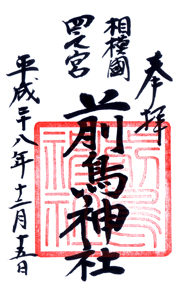 奉拝
相模國
四之宮
前鳥神社
平成二十八年十二月十五日